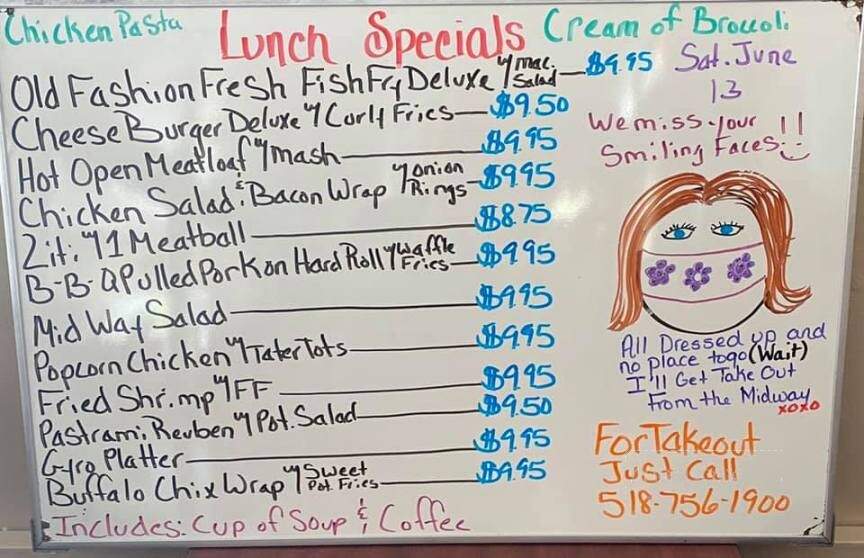 Chicken Pasta
Lunch Specials
Cream of Broccoli
Old Fashion Fresh Fish Fry Deluxe w/ mac. Salad — $9.95
Cheese Burger Deluxe w/ Curly Fries — $9.50
Hot Open Meatloaf w/ mash — $9.95
Chicken Salad & Bacon Wrap w/ onion Rings — $9.95
Ziti w/ 1 Meatball — $8.75
B-B-Q Pulled Pork on Hard Roll w/ Waffle Fries — $9.95
Mid Way Salad — $9.95
Popcorn Chicken w/ Tater Tots — $9.95
Fried Shrimp w/ FF — $9.95
Pastrami Reuben w/ Pot. Salad — $9.50
Gyro Platter — $9.95
Buffalo Chix Wrap w/ Sweet Pot. Fries — $9.95
Includes: Cup of Soup & Coffee
Sat. June
13
We miss your
Smiling Faces!!
All Dressed up and
no place to go (Wait)
I'll Get Take Out
from the Midway
xoxo
For Takeout
Just Call
518-756-1900